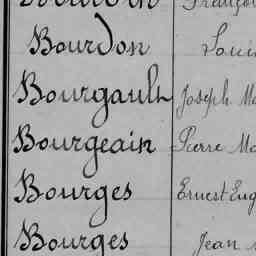 Bourdon
Bourgault Joseph
Bourgeain Pierre
Bourges Ernest Eug
Bourges Jean